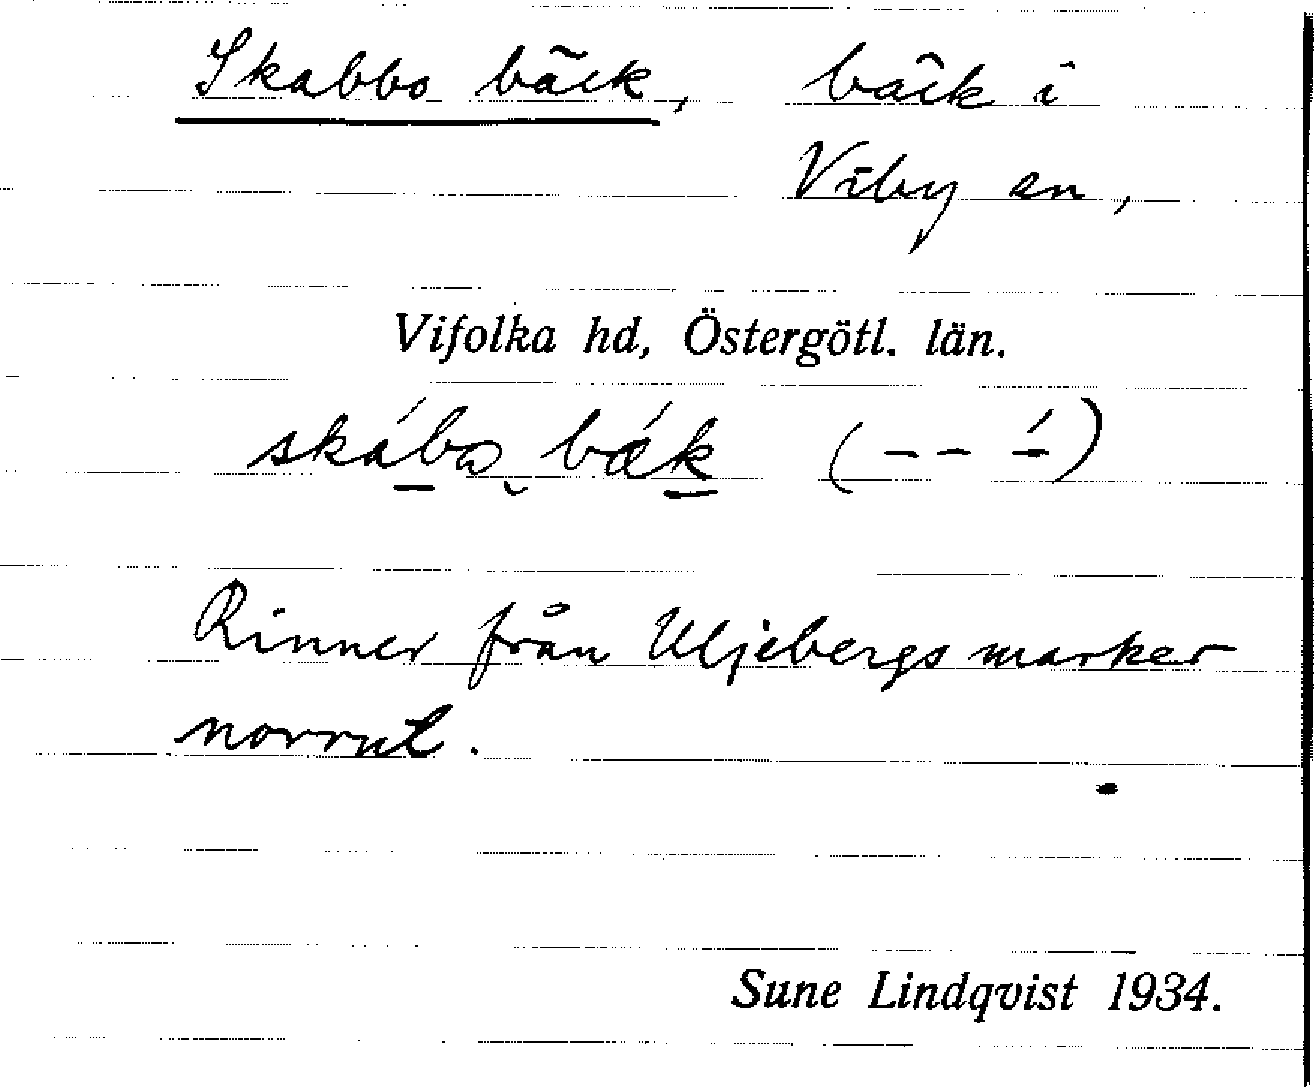 Skabbo bäck, bäck i
Viby sn,
Vifolka hd, Östergötl. län.
skábω̮ bǽk (– – ́–)
Rinner från Uljebergs marker
norrut.
Sune Lindqvist 1934.